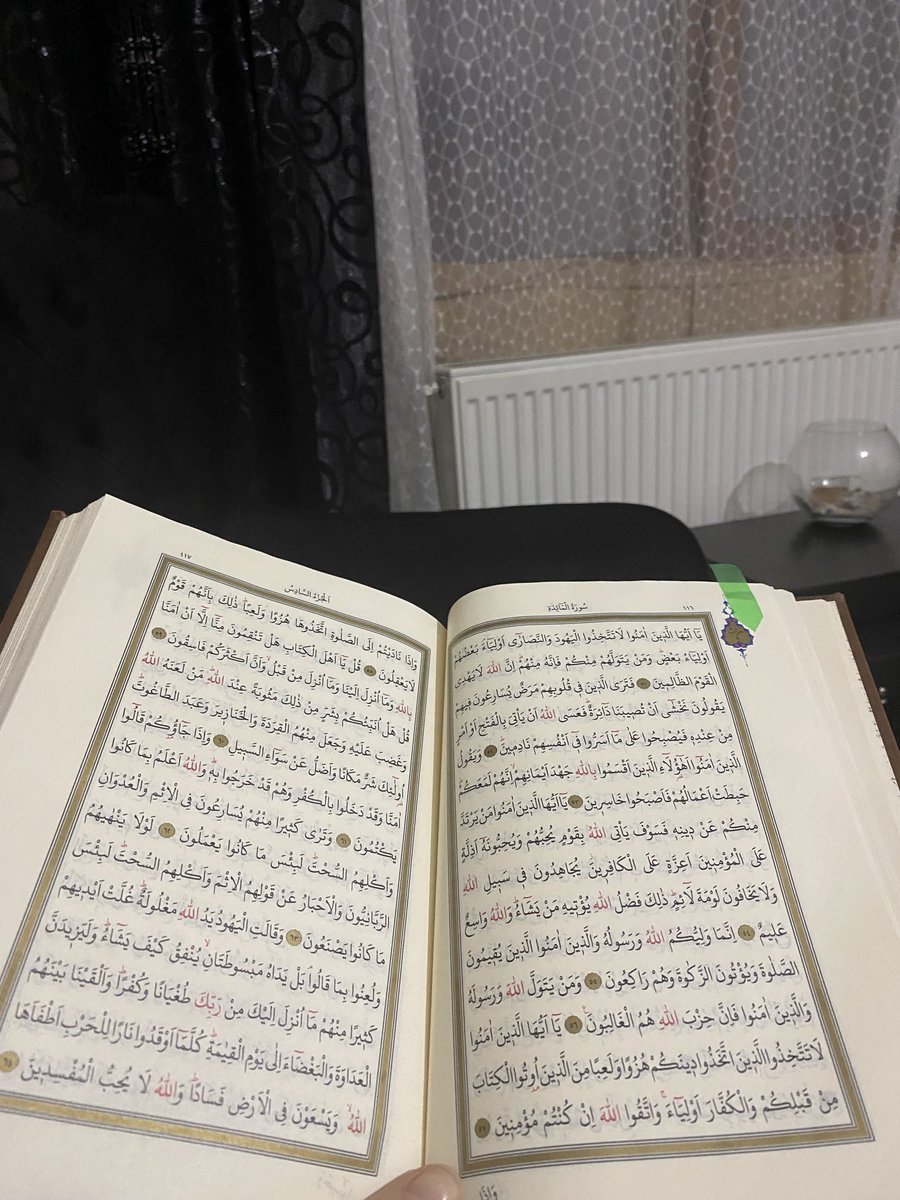 ١١٦
سُورَةُ الْمَائِدَةِ
يَٓا اَيُّهَا الَّذ۪ينَ اٰمَنُوا لَا تَتَّخِذُوا الْيَهُودَ وَالنَّصَارٰٓى اَوْلِيَٓاءَۢ بَعْضُهُمْ
اَوْلِيَٓاءُ بَعْضٍۜ وَمَنْ يَتَوَلَّهُمْ مِنْكُمْ فَاِنَّهُ مِنْهُمْۜ اِنَّ اللّٰهَ لَا يَهْدِي
الْقَوْمَ الظَّالِم۪ينَ ﴿٥١﴾ فَتَرَى الَّذ۪ينَ ف۪ي قُلُوبِهِمْ مَرَضٌ يُسَارِعُونَ ف۪يهِمْ
يَقُولُونَ نَخْشٰٓى اَنْ تُص۪يبَنَا دَٓائِرَةٌۜ فَعَسَى اللّٰهُ اَنْ يَأْتِيَ بِالْفَتْحِ اَوْ اَمْرٍ
مِنْ عِنْدِه۪ فَيُصْبِحُوا عَلٰى مَٓا اَسَرُّوا ف۪ٓي اَنْفُسِهِمْ نَادِم۪ينَ ﴿٥٢﴾ وَيَقُولُ
الَّذ۪ينَ اٰمَنُٓوا اَهٰٓؤُ۬لَٓاءِ الَّذ۪ينَ اَقْسَمُوا بِاللّٰهِ جَهْدَ اَيْمَانِهِمْۙ اِنَّهُمْ لَمَعَكُمْۜ
حَبِطَتْ اَعْمَالُهُمْ فَاَصْبَحُوا خَاسِر۪ينَ ﴿٥٣﴾ يَٓا اَيُّهَا الَّذ۪ينَ اٰمَنُوا مَنْ يَرْتَدَّ
مِنْكُمْ عَنْ د۪ينِه۪ فَسَوْفَ يَأْتِي اللّٰهُ بِقَوْمٍ يُحِبُّهُمْ وَيُحِبُّونَهُٓۙ اَذِلَّةٍ
عَلَى الْمُؤْمِن۪ينَ اَعِزَّةٍ عَلَى الْكَافِر۪ينَۘ يُجَاهِدُونَ ف۪ي سَب۪يلِ اللّٰهِ
وَلَا يَخَافُونَ لَوْمَةَ لَٓائِمٍۜ ذٰلِكَ فَضْلُ اللّٰهِ يُؤْت۪يهِ مَنْ يَشَٓاءُۜ وَاللّٰهُ وَاسِعٌ
عَل۪يمٌ ﴿٥٤﴾ اِنَّمَا وَلِيُّكُمُ اللّٰهُ وَرَسُولُهُ وَالَّذ۪ينَ اٰمَنُوا الَّذ۪ينَ يُق۪يمُونَ
الصَّلٰوةَ وَيُؤْتُونَ الزَّكٰوةَ وَهُمْ رَاكِعُونَ ﴿٥٥﴾ وَمَنْ يَتَوَلَّ اللّٰهَ وَرَسُولَهُ
وَالَّذ۪ينَ اٰمَنُوا فَاِنَّ حِزْبَ اللّٰهِ هُمُ الْغَالِبُونَ۟ ﴿٥٦﴾ يَٓا اَيُّهَا الَّذ۪ينَ اٰمَنُوا
لَا تَتَّخِذُوا الَّذ۪ينَ اتَّخَذُوا د۪ينَكُمْ هُزُوًا وَلَعِبًا مِنَ الَّذ۪ينَ اُو۫تُوا الْكِتَابَ
مِنْ قَبْلِكُمْ وَالْكُفَّارَ اَوْلِيَٓاءَۚ وَاتَّقُوا اللّٰهَ اِنْ كُنْتُمْ مُؤْمِن۪ينَ ﴿٥٧﴾
وَاِذَا
اَلْجُزْءُ السَّادِسُ
١١٧
وَاِذَا نَادَيْتُمْ اِلَى الصَّلٰوةِ اتَّخَذُوهَا هُزُوًا وَلَعِبًاۜ ذٰلِكَ بِاَنَّهُمْ قَوْمٌ
لَا يَعْقِلُونَ ﴿٥٨﴾ قُلْ يَٓا اَهْلَ الْكِتَابِ هَلْ تَنْقِمُونَ مِنَّٓا اِلَّٓا اَنْ اٰمَنَّا
بِاللّٰهِ وَمَٓا اُنْزِلَ اِلَيْنَا وَمَٓا اُنْزِلَ مِنْ قَبْلُۙ وَاَنَّ اَكْثَرَكُمْ فَاسِقُونَ ﴿٥٩﴾
قُلْ هَلْ اُنَبِّئُكُمْ بِشَرٍّ مِنْ ذٰلِكَ مَثُوبَةً عِنْدَ اللّٰهِۜ مَنْ لَعَنَهُ اللّٰهُ
وَغَضِبَ عَلَيْهِ وَجَعَلَ مِنْهُمُ الْقِرَدَةَ وَالْخَنَاز۪يرَ وَعَبَدَ الطَّاغُوتَۜ
اُو۬لٰٓئِكَ شَرٌّ مَكَانًا وَاَضَلُّ عَنْ سَوَٓاءِ السَّب۪يلِ ﴿٦٠﴾ وَاِذَا جَٓاؤُ۫كُمْ قَالُٓوا
اٰمَنَّا وَقَدْ دَخَلُوا بِالْكُفْرِ وَهُمْ قَدْ خَرَجُوا بِه۪ۜ وَاللّٰهُ اَعْلَمُ بِمَا كَانُوا
يَكْتُمُونَ ﴿٦١﴾ وَتَرٰى كَث۪يرًا مِنْهُمْ يُسَارِعُونَ فِي الْاِثْمِ وَالْعُدْوَانِ
وَاَكْلِهِمُ السُّحْتَۜ لَبِئْسَ مَا كَانُوا يَعْمَلُونَ ﴿٦٢﴾ لَوْلَا يَنْهٰيهُمُ
الرَّبَّانِيُّونَ وَالْاَحْبَارُ عَنْ قَوْلِهِمُ الْاِثْمَ وَاَكْلِهِمُ السُّحْتَۜ لَبِئْسَ
مَا كَانُوا يَصْنَعُونَ ﴿٦٣﴾ وَقَالَتِ الْيَهُودُ يَدُ اللّٰهِ مَغْلُولَةٌۜ غُلَّتْ اَيْد۪يهِمْ
وَلُعِنُوا بِمَا قَالُواۢ بَلْ يَدَاهُ مَبْسُوطَتَانِۙ يُنْفِقُ كَيْفَ يَشَٓاءُۜ وَلَيَز۪يدَنَّ
كَث۪يرًا مِنْهُمْ مَٓا اُنْزِلَ اِلَيْكَ مِنْ رَبِّكَ طُغْيَانًا وَكُفْرًاۜ وَاَلْقَيْنَا بَيْنَهُمُ
الْعَدَاوَةَ وَالْبَغْضَٓاءَ اِلٰى يَوْمِ الْقِيٰمَةِۜ كُلَّمَٓا اَوْقَدُوا نَارًا لِلْحَرْبِ اَطْفَاَهَا
اللّٰهُۙ وَيَسْعَوْنَ فِي الْاَرْضِ فَسَادًاۜ وَاللّٰهُ لَا يُحِبُّ الْمُفْسِد۪ينَ ﴿٦٤﴾